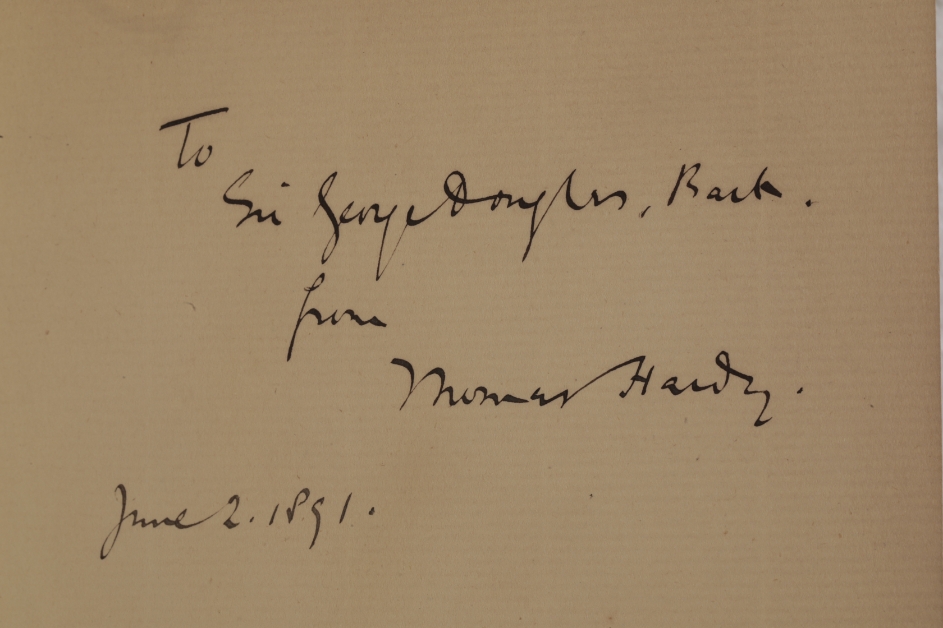 To
Sir George Douglas, Bart.
from
Thomas Hardy.
June 2. 1891.